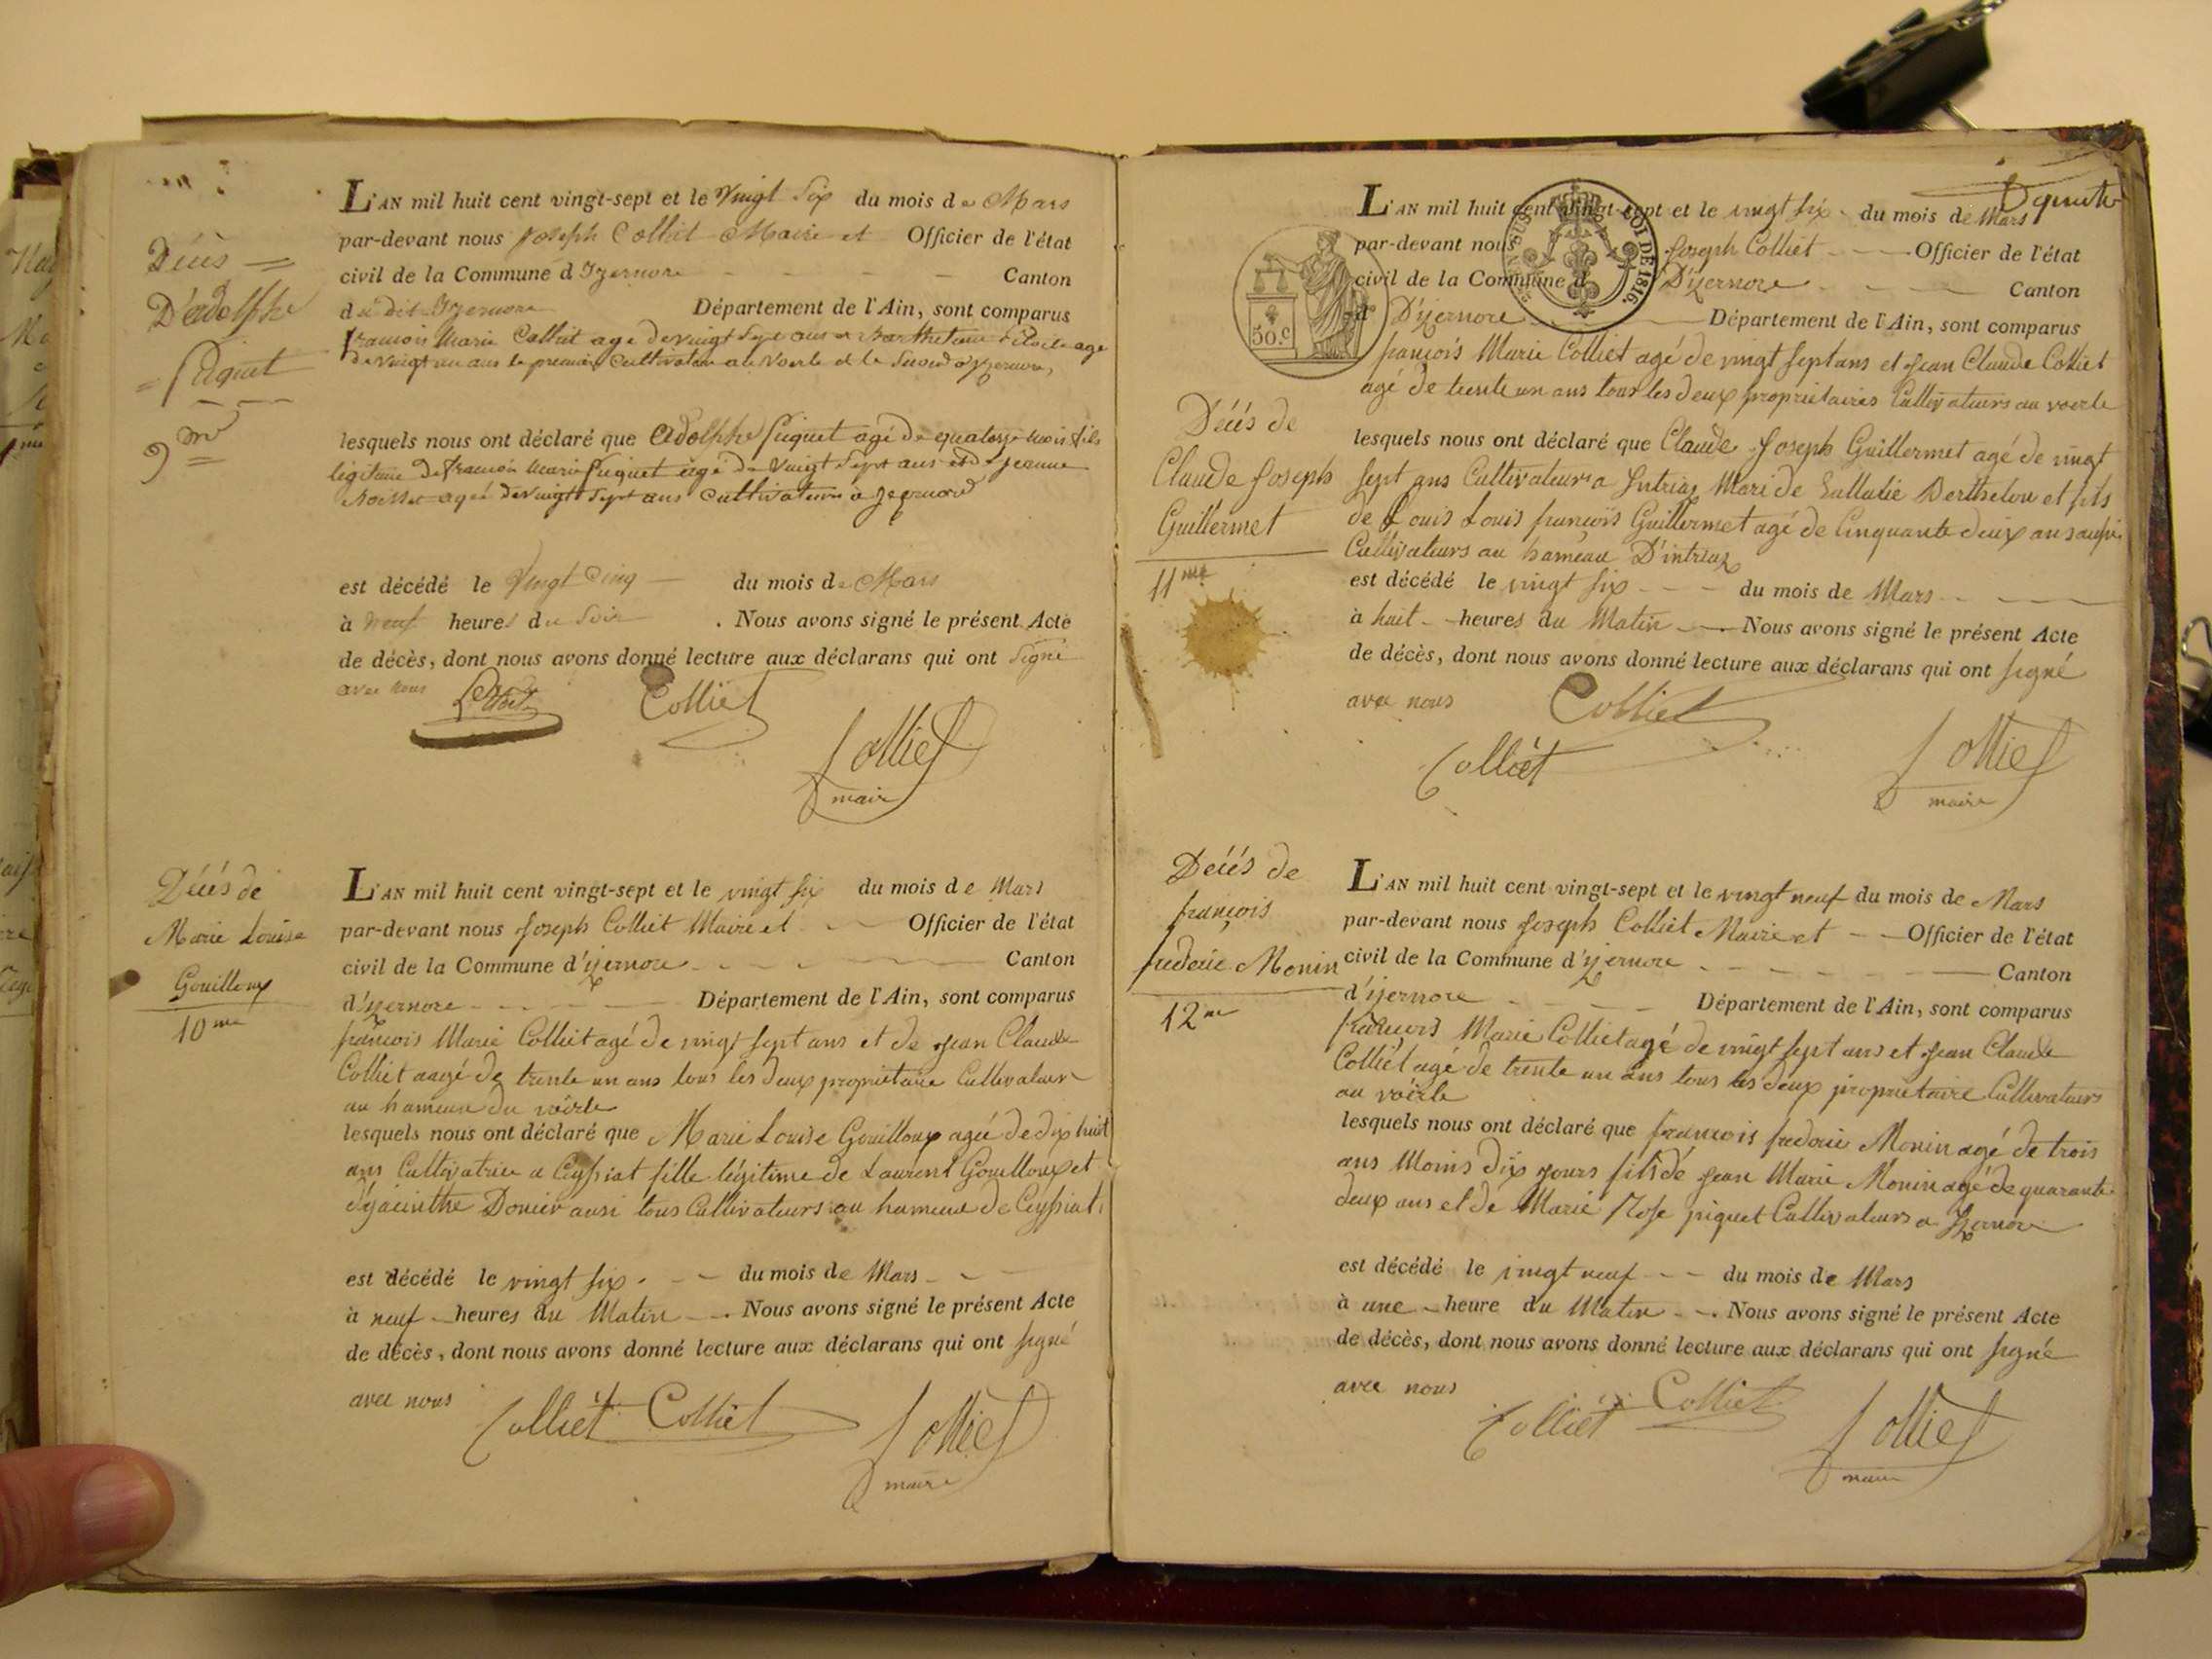 Décès
D'adolphe
Piquet
9me
L'AN mil huit cent vingt-sept et le Vingt Six du mois de Mars
par-devant nous Joseph Colliet Maire et Officier de l'état
civil de la Commune d Izernore Canton
du dit Izernore Département de l'Ain, sont comparus
francois Marie Colliet age de vingt Sept ans et Barthelemi age
de vingt un ans le premier Cultivateur au Voerle et le d'izernore,
lesquels nous ont déclaré que Adolphe Piquet agé de quatorze mois fils
légitime de francois Marie Piquet agé de Vingt Sept ans et de Jeanne
agée de vingt Sept ans Cultivateurs à Izernore
est décédé le Vingt Cinq du mois de Mars
à neuf heures du Soir . Nous avons signé le présent Acte
de décès, dont nous avons donné lecture aux déclarans qui ont Signé
avec nous
Colliet
Colliet
maire
Décès de
Marie Louise
Gouilloux
10me
L'AN mil huit cent vingt-sept et le vingt six du mois de Mars
par-devant nous Joseph Colliet Maire et Officier de l'état
civil de la Commune d'izernore Canton
d'izernore Département de l'Ain, sont comparus
françois Marie Colliet agé de vingt sept ans et de Jean Claude
Colliet aagé de trente un ans tous les deux proprietaire Cultivateurs
au hameau du voërle
lesquels nous ont déclaré que Marie Louise Gouilloux agée de dix huit
ans Cultivatrice a Ceyssiat fille légitime de Laurent Gouilloux et
d'yacinthe Donier ausi tous Cultivateurs au hameau de Ceyssiat.
est décédé le vingt six du mois de Mars
à neuf heures du Matin . Nous avons signé le présent Acte
de décès, dont nous avons donné lecture aux déclarans qui ont signé
avec nous
Colliet Colliet
Colliet
maire
L'AN mil huit cent vingt-sept et le vingt six du mois de Mars
par-devant nous Joseph Colliet Officier de l'état
civil de la Commune d D'izernore Canton
de D'izernore Département de l'Ain, sont comparus
LOI DE 1816.
50.c
françois Marie Colliet agé de vingt sept ans et Jean Claude Colliet
agé de trente un ans tous les deux proprietaires Cultivateurs au voerle
Décés de
Claude Joseph
Guillermet
11me
lesquels nous ont déclaré que Claude Joseph Guillermet agé de vingt
sept ans Cultivateur a Intriaz Mari de Eallalie Berthelon et fils
de Louis Louis françois Guillermet agé de Cinquante deux ans aussi
Cultivateurs au hameau D'intriaz
est décédé le vingt six du mois de Mars
à huit heures du Matin . Nous avons signé le présent Acte
de décès, dont nous avons donné lecture aux déclarans qui ont signé
avec nous
Colliet
Colliet
Colliet
maire
Décés de
françois
frederic Monin
12me
L'AN mil huit cent vingt-sept et le vingt neuf du mois de Mars
par-devant nous Joseph Colliet Maire et Officier de l'état
civil de la Commune d'izernore Canton
d'izernore Département de l'Ain, sont comparus
françois Marie Colliet agé de vingt sept ans et Jean Claude
Colliet agé de trente un ans tous les deux proprietaire Cultivateurs
au voërle
lesquels nous ont déclaré que francois frederic Monin agé de trois
ans Moins dix jours fils de Jean Marie Monin agé de quarante
deux ans et de Marie Rose piquet Cultivateurs a Izernore
est décédé le vingt neuf du mois de Mars
à une heure du Matin . Nous avons signé le présent Acte
de décès, dont nous avons donné lecture aux déclarans qui ont signé
avec nous
Colliet Colliet
Colliet
maire